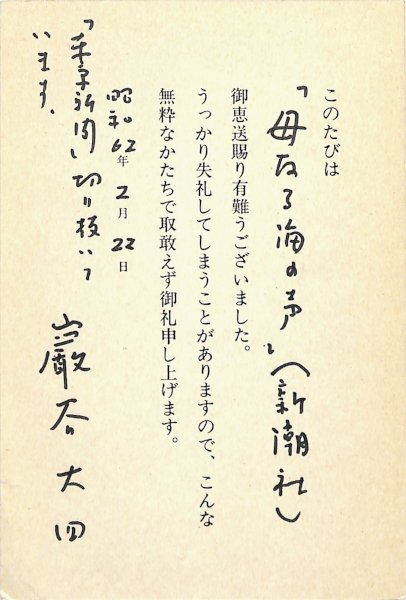 このたびは
「母なる海の声」(新潮社)
御恵送賜り有難うございました。
うっかり失礼してしまうことがありますので、こんな
無粋なかたちで取敢えず御礼申し上げます。
昭和62年2月22日
新聞」切り抜いて
います、
巖谷大四